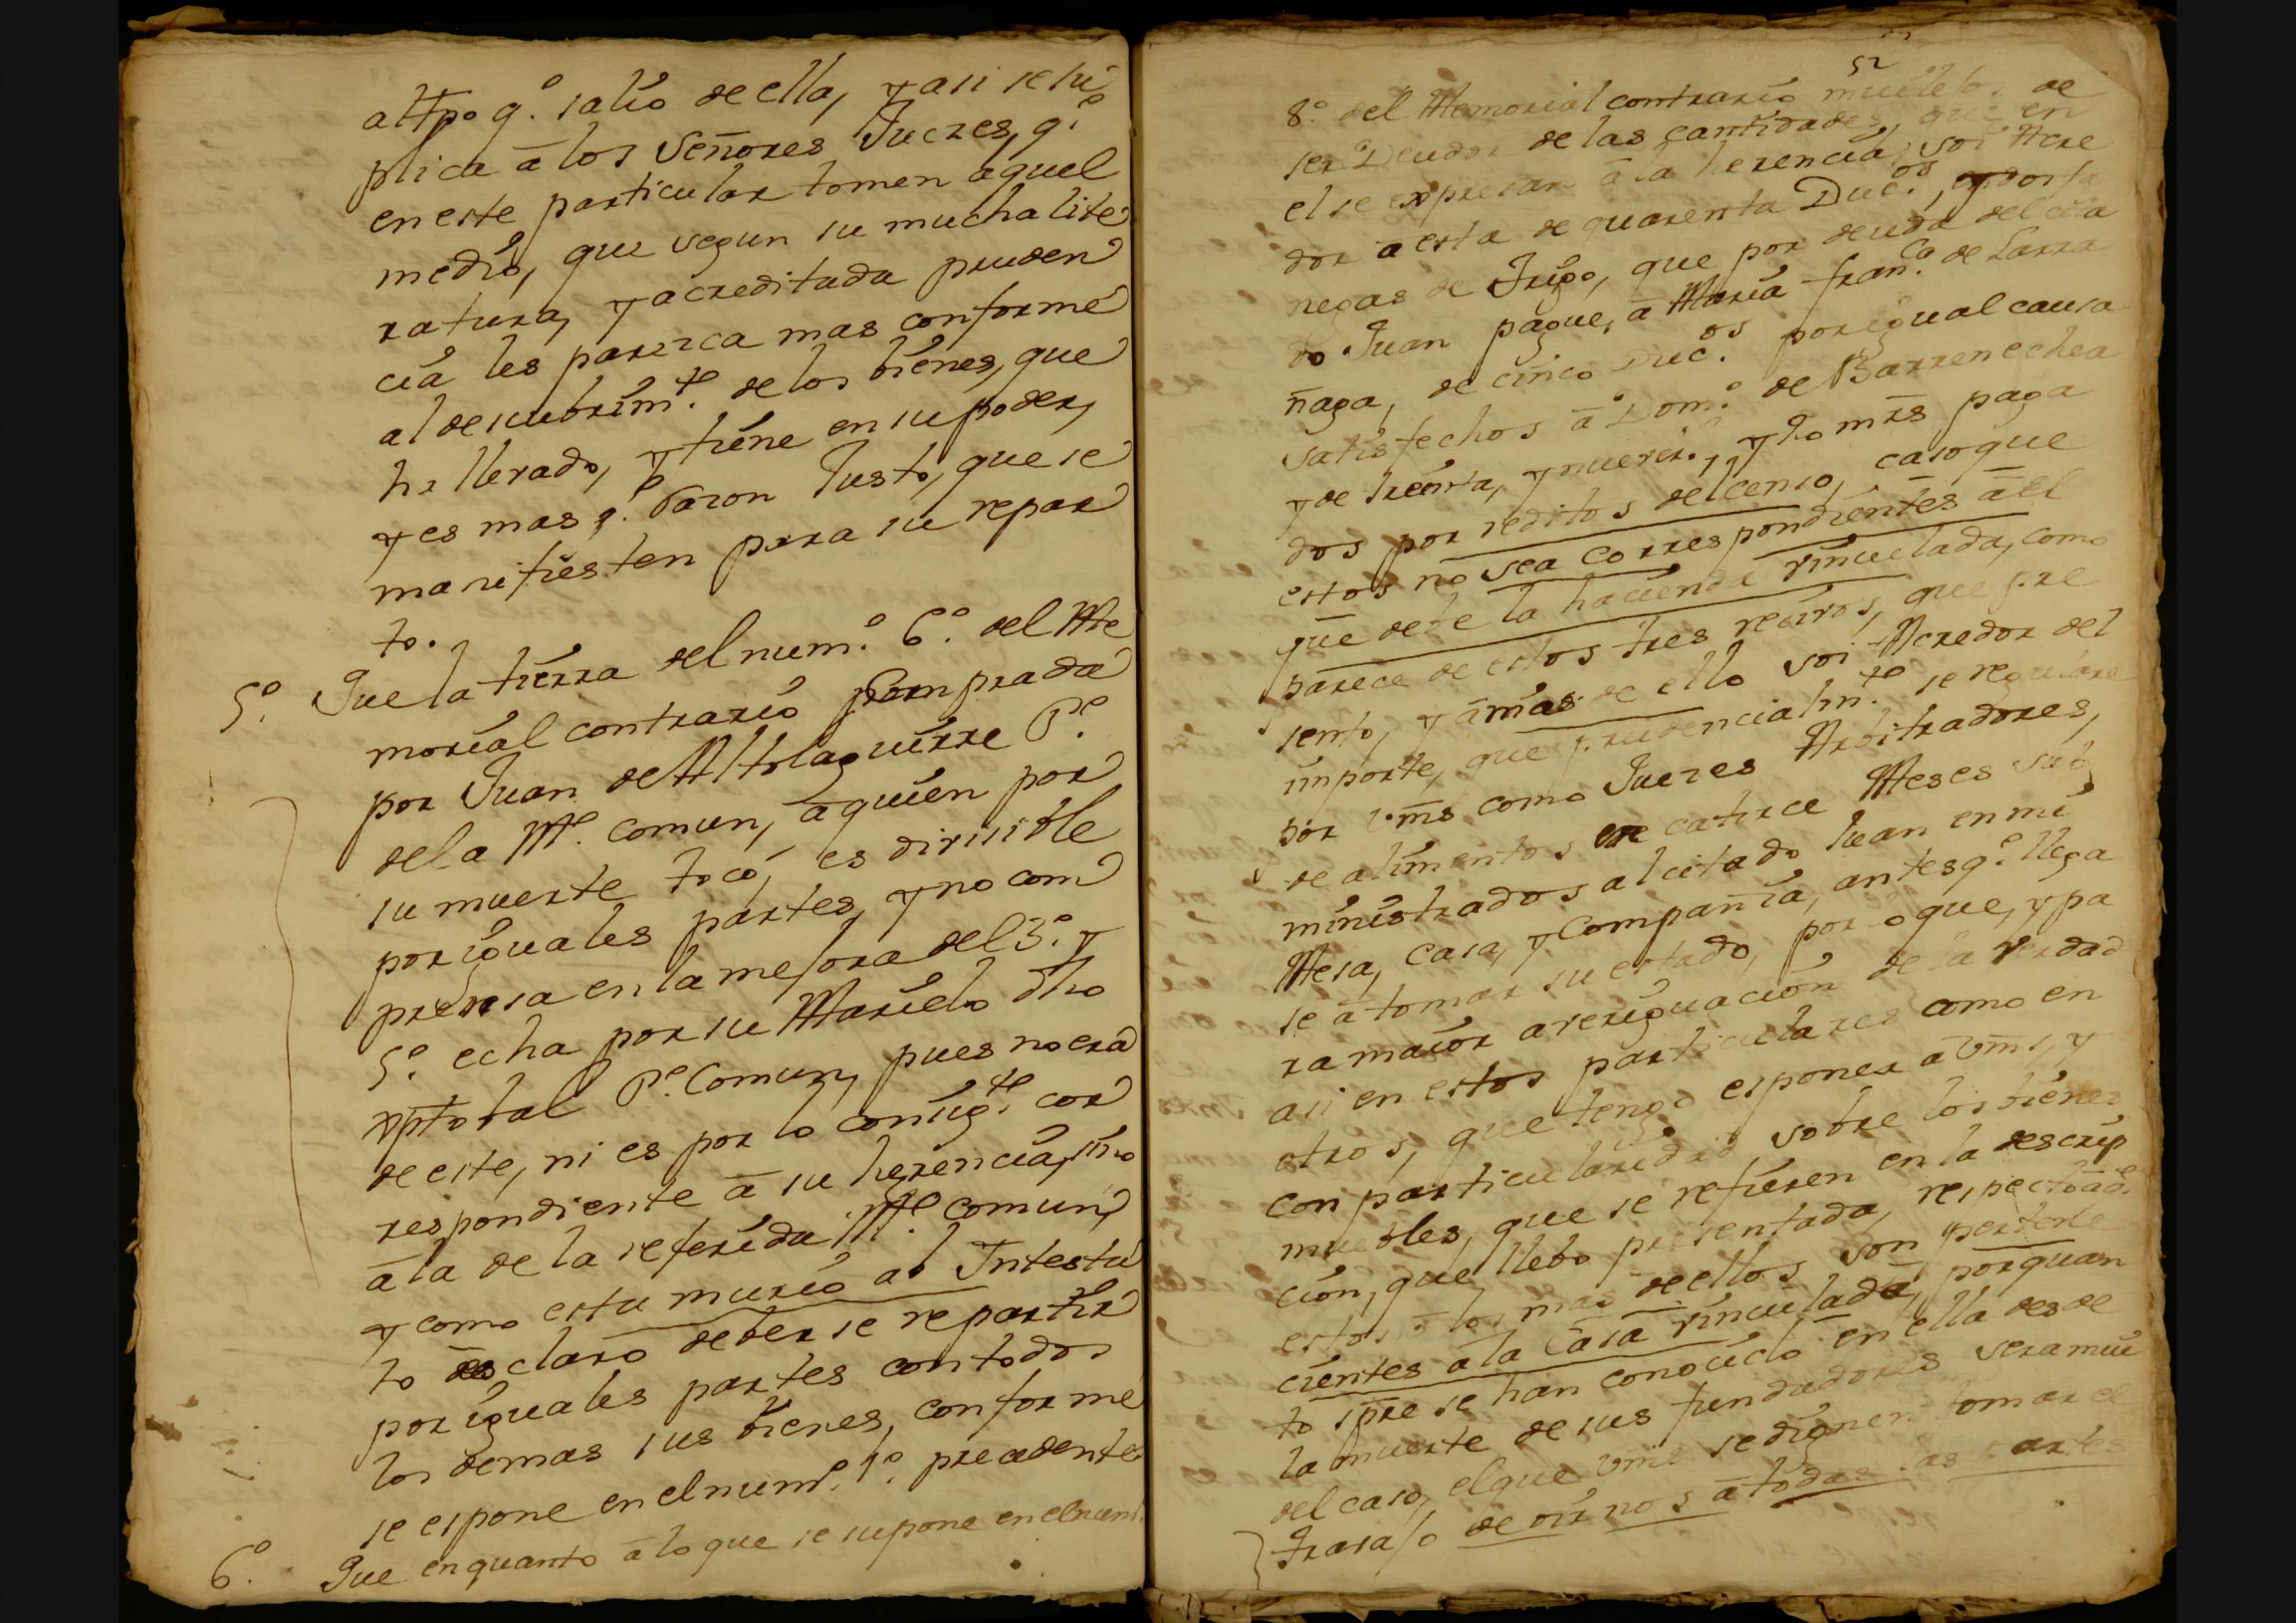 al tpo q.º salio de ella, y asi se su
plica â los Señores Jueces, q.e
en este particular tomen aquel
medio, que segun su mucha lite
ratura, y acreditada pruden
cia les parezca mas conforme
al descubrim.to de los bienes, que
ha llevado, y tiene en su poder,
y es mas q.e razon Justo, que se
manifiesten para su repar
to.
5.º Que la tierra del num.º 6.º del Me
morial contrario comprada
por Juan de Altolaguirre P.e
de la M.e comun, â quien por
su muerte tocó, es divisible
por iguales partes, y no com
prensa en la mejora del 3.º y
5.º echa por su Marido dho
P.e Comun, pues no era
de este, ni es por lo consig.te cor
respondiente â su herencia, sino
â la de la referida M.e comun,
y como esta murio ab Intesta
to es claro deberse repartir
por iguales partes con todos
los demas sus bienes, conforme
se espone en el num.º 1.º precedente
6.º Que en quanto â lo que se supone en el num.
52
8.º del Memorial contrario de
ser Deudor de las cantidades, que en
el se expresan â la herencia, soi Acre
dor â esta de quarenta Duc.os, y dos fa
negas de Trigo, que por deuda del cita
do Juan pague, â Maria Fran.ca de Larra
ñaga, de cinco Duc.os por igual causa
satisfechos â Dom.º de Barrenechea
y de treinta, y nueve y mrs paga
dos por reditos del censo, caso que
estos no sea correspondientes â el
que debe la hacienda vinculada, como
parece de estos tres recivos, que pre
sento, y âmas de ello soi Acredor del
importe, que prudencialm.te se regulare
por Vms como Jueces Arbitradores,
de alimentos de catorce Meses su
ministrados al citado Juan en mi
Mesa, casa, y Compañia, antes q.e llega
se â tomar su estado, por lo que, y pa
ra maior averiguacion de la verdad
asi en estos particulares como en
otros, que tengo esponer â Vms, y
con particularidad sobre los bienes
muebles, que se refieren en la descrip
cion, que llebo presentada, respecto âq.e
estos ô los mas de ellos son pertene
cientes â la Casa vinculada, porquan
to spre se han conocido en ella desde
la muerte de sus fundadores sera mui
del caso, el que Vms se dignen tomar el
trabajo de oir nos â todas las partes